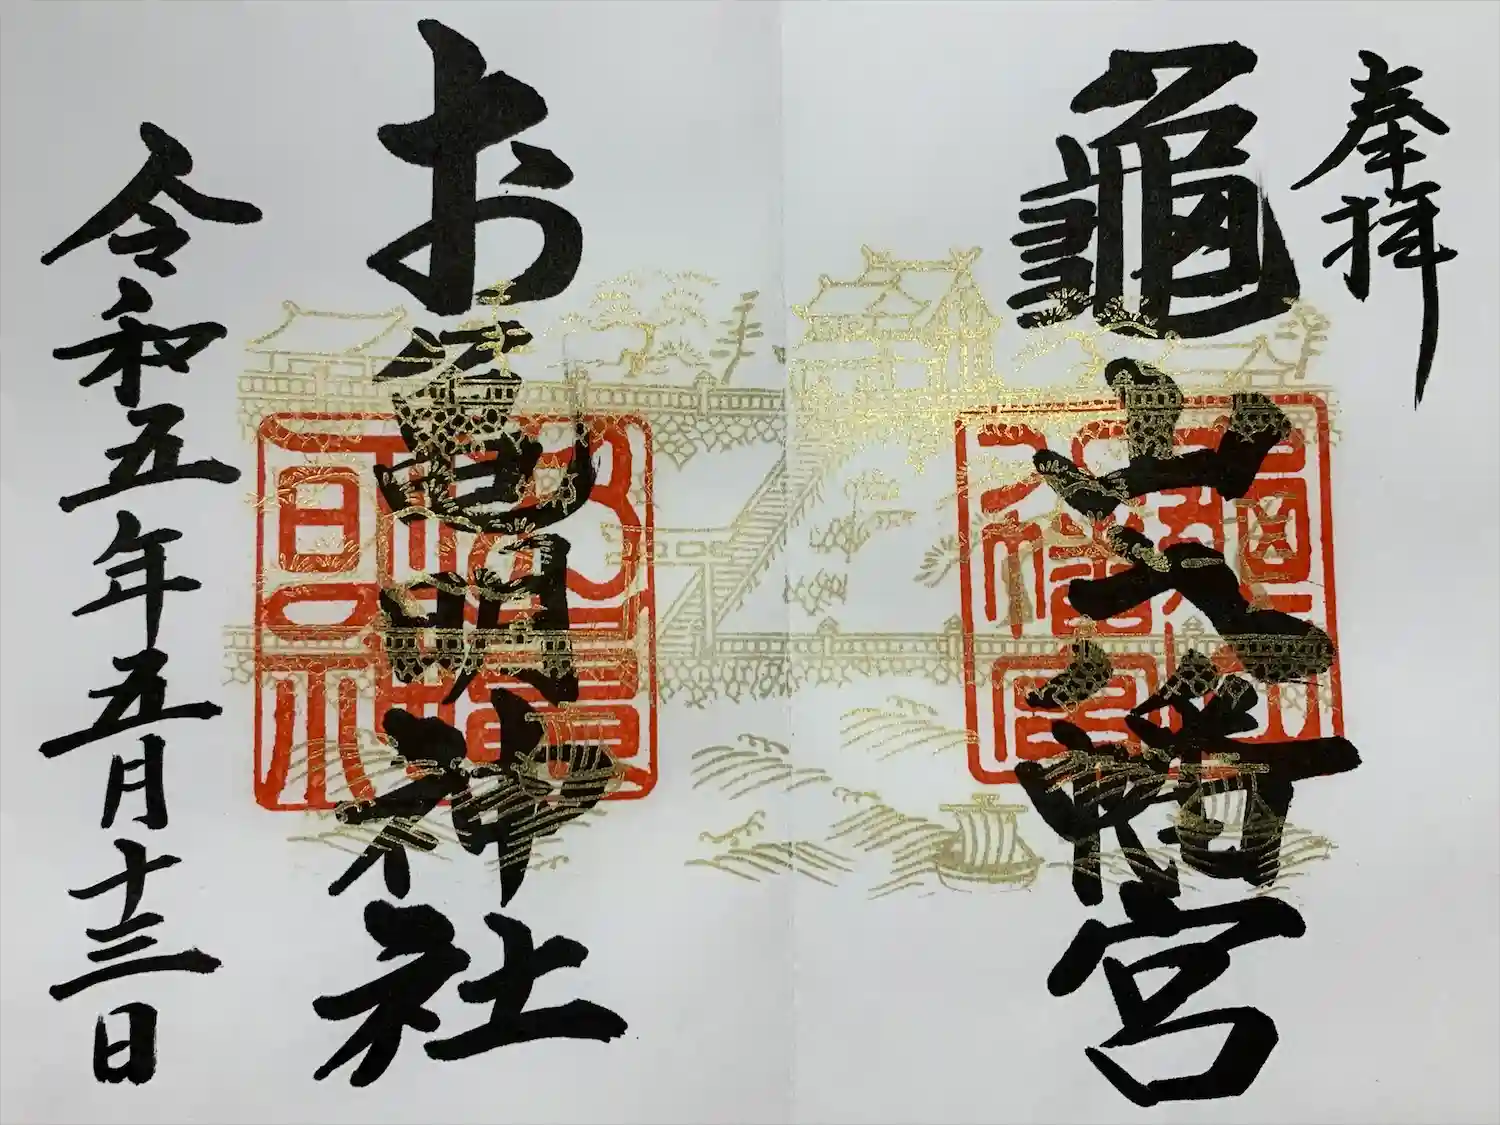 奉拝
龜山八幡宮
お亀明神社
令和五年五月十三日